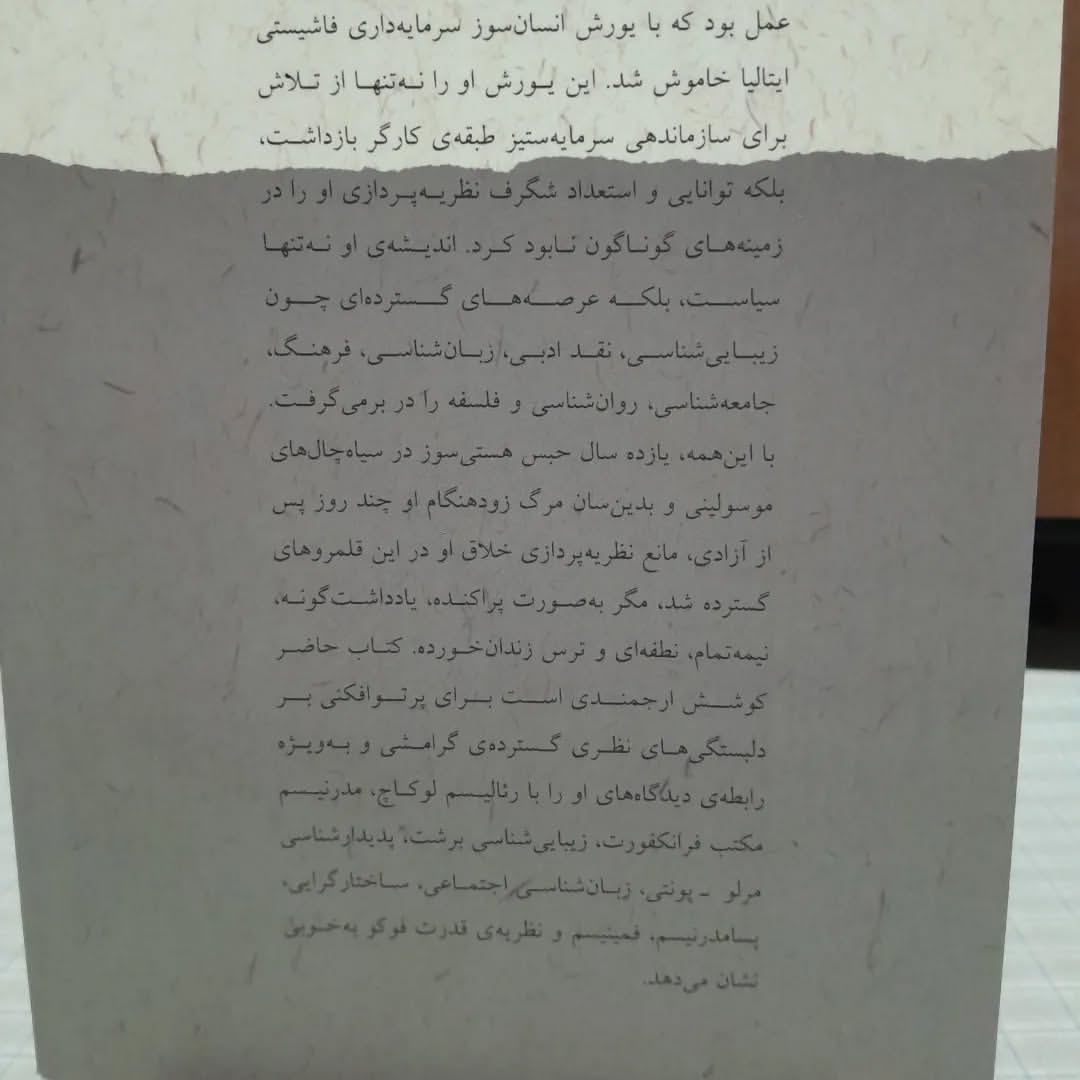 عمل بود که با یورش انسان‌سوز سرمایه‌داری فاشیستی
ایتالیا خاموش شد. این یورش او را نه‌تنها از تلاش
برای سازماندهی سرمایه‌ستیز طبقه‌ی کارگر بازداشت،
بلکه توانایی و استعداد شگرف نظریه‌پردازی او را در
زمینه‌های گوناگون نابود کرد. اندیشه‌ی او نه‌تنها
سیاست، بلکه عرصه‌های گسترده‌ای چون
زیبایی‌شناسی، نقد ادبی، زبان‌شناسی، فرهنگ،
جامعه‌شناسی، روان‌شناسی و فلسفه را در برمی‌گرفت.
با این‌همه، یازده سال حبس هستی‌سوز در سیاه‌چال‌های
موسولینی و بدین‌سان مرگ زودهنگام او چند روز پس
از آزادی، مانع نظریه‌پردازی خلاق او در این قلمروهای
گسترده شد، مگر به‌صورت پراکنده، یادداشت‌گونه،
نیمه‌تمام، نطفه‌ای و ترس زندان‌خورده. کتاب حاضر
کوشش ارجمندی است برای پرتوافکنی بر
دلبستگی‌های نظری گسترده‌ی گرامشی و به‌ویژه
رابطه‌ی دیدگاه‌های او را با رئالیسم لوکاچ، مدرنیسم
مکتب فرانکفورت، زیبایی‌شناسی برشت، پدیدارشناسی
مرلو ـ پونتی، زبان‌شناسی اجتماعی، ساختارگرایی،
پسامدرنیسم، فمینیسم و نظریه‌ی قدرت فوکو به‌خوبی
نشان می‌دهد.